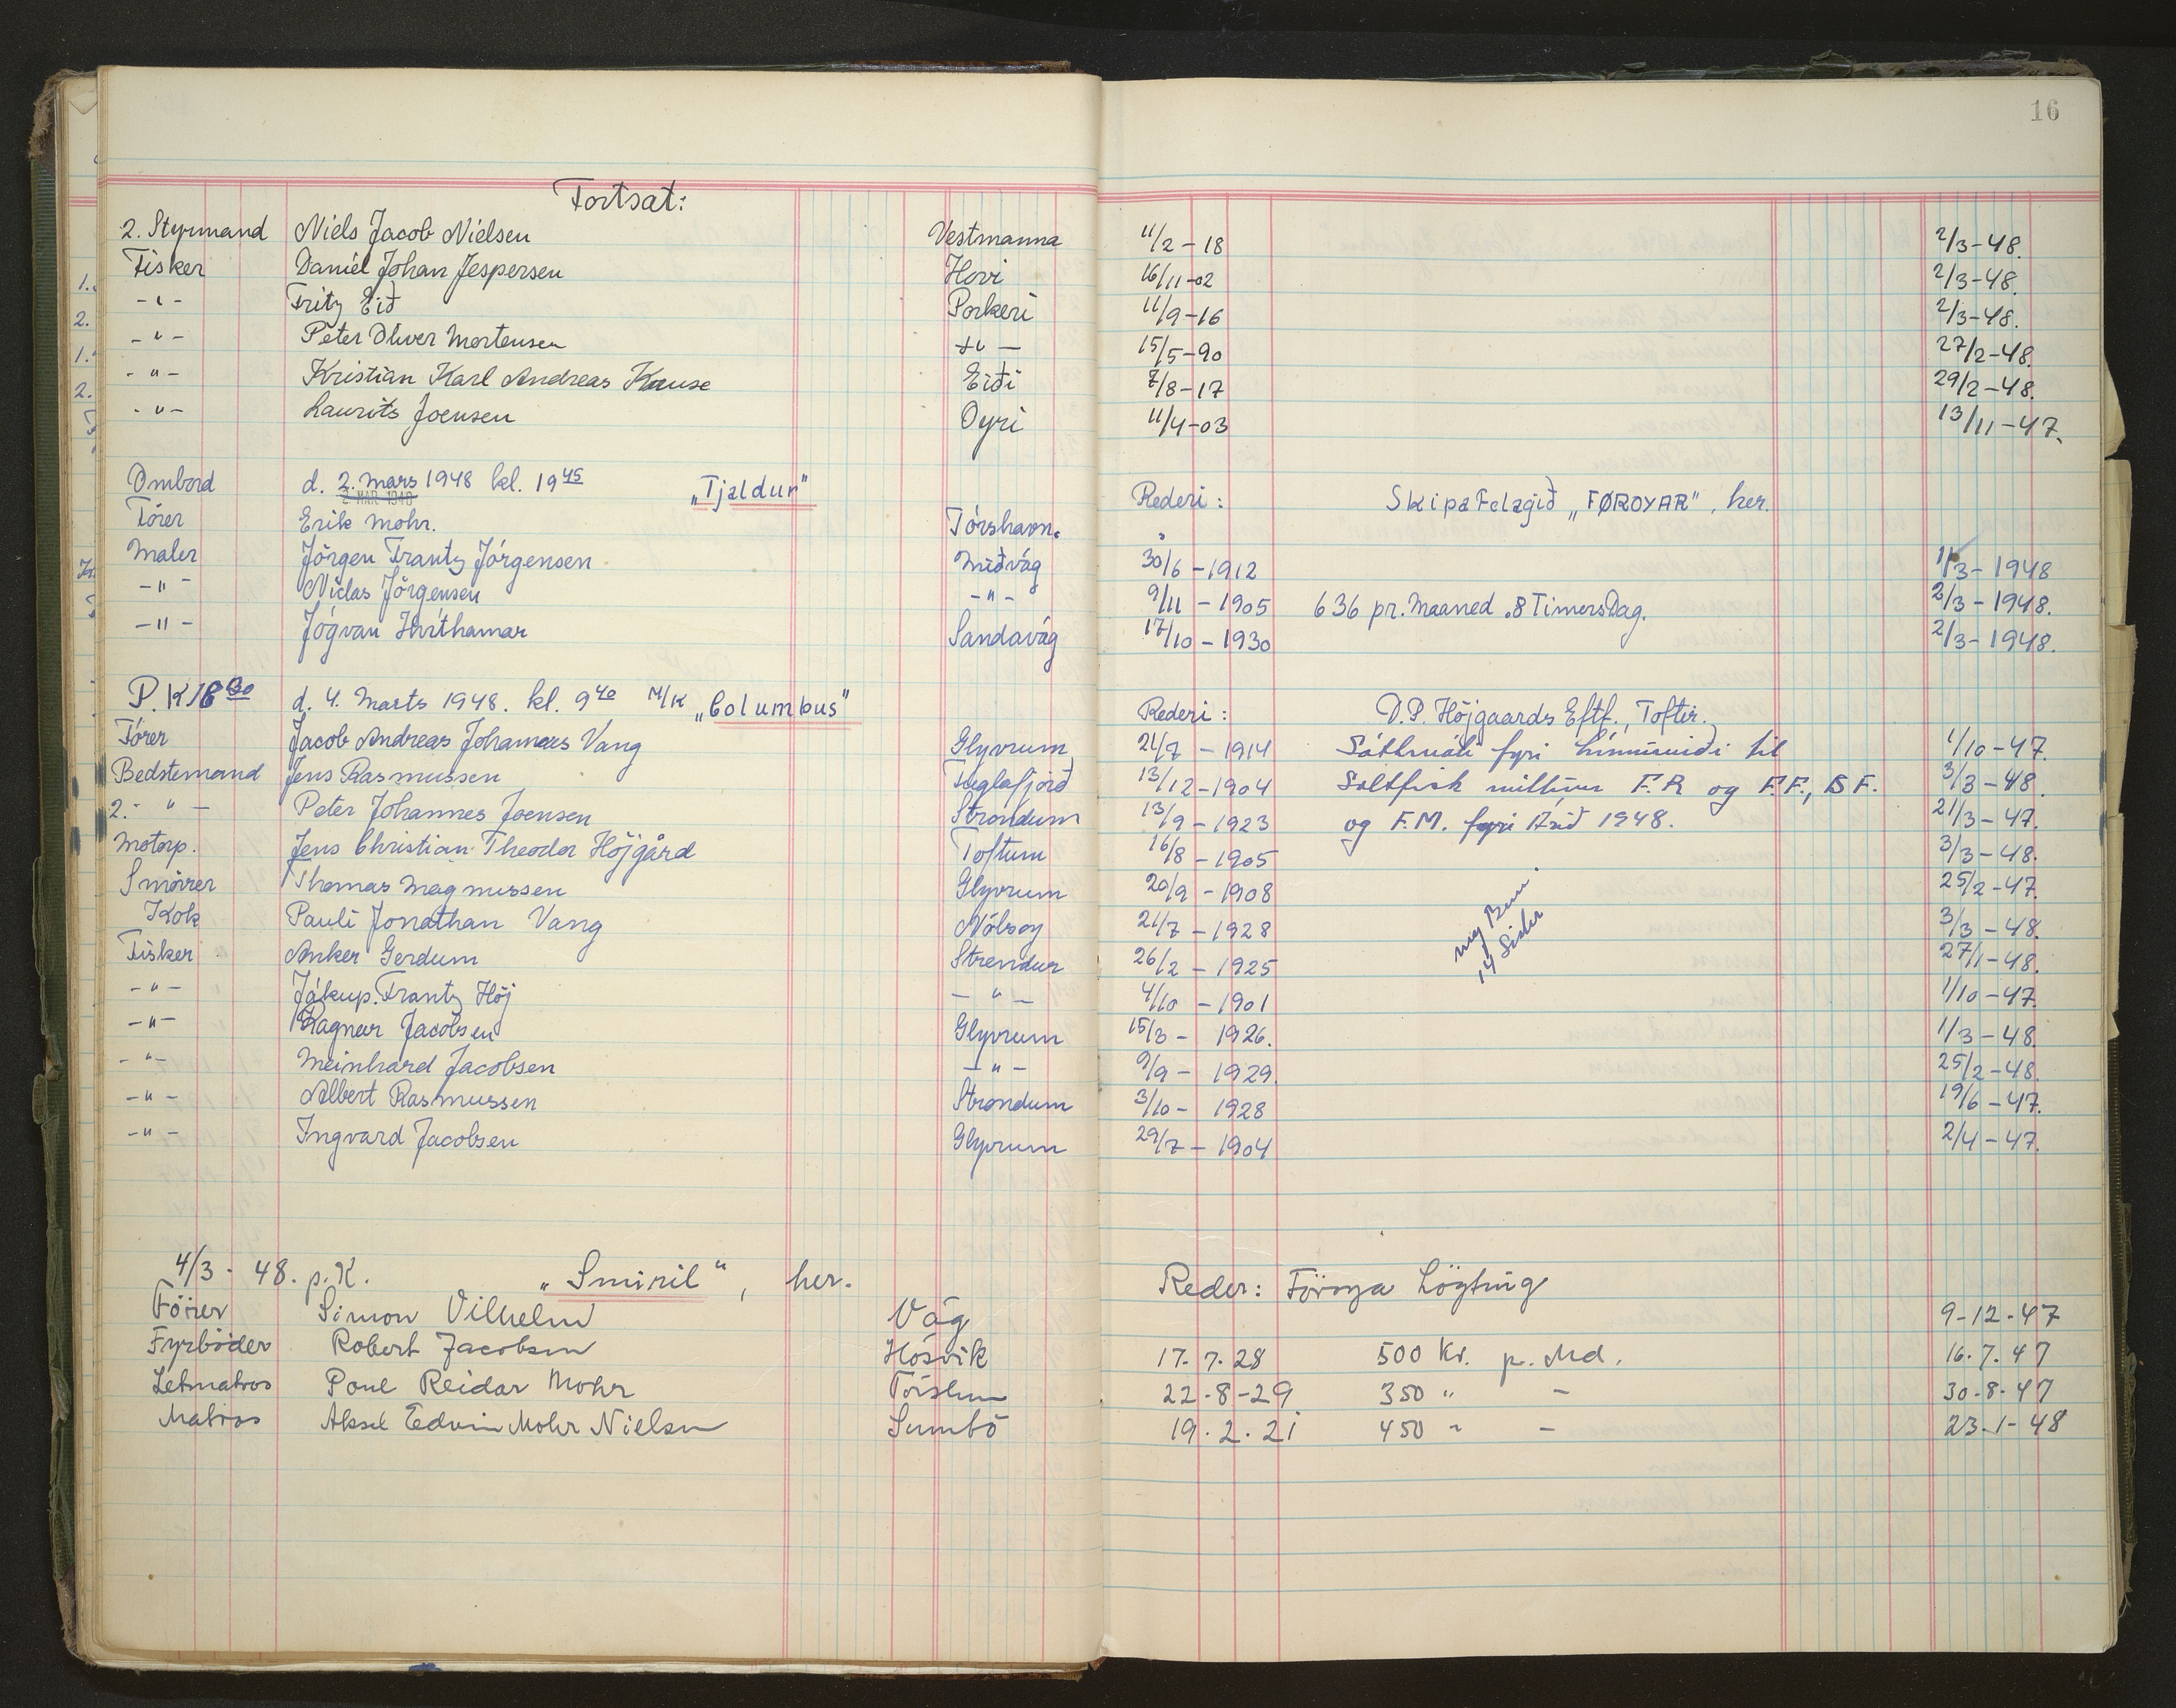 16
Fortsat:
2. Styrmand Niels Jacob Nielsen Vestmanna 11/2-18 2/3-48.
Fisker Daniel Johan Jespersen Hovi 16/11-02 2/3-48.
-"- Fritz Eið Porkeri 11/9-16 2/3-48.
-"- Peter Oliver Mortensen -"- 15/5-90 27/2-48.
-"- Kristian Karl Andreas Kruse Eiði 7/8-17 29/2-48.
-"- Laurits Joensen Oyri 11/4-03 13/11-47.
Ombord d. 2. mars 1948 kl. 19 45 „Tjaldur" Rederi: SkipaFelagið „FØROYAR", her.
2 MAR 1948
Förer Erik Mohr. Tórshavn.
Maler Jörgen Frantz Jörgensen Miðvág 30/6-1912 1/3-1948
-"- Niclas Jörgensen -"- 9/11-1905 636 pr. Maaned. 8 TimersDag. 2/3-1948.
-"- Jógvan Hvithamar Sandavág 17/10-1930 2/3-1948.
P.K. d. 4. Marts 1948. kl. 9 40 M/K „Columbus" Rederi: D.P. Höjgaards Eftf., Toftir.
Förer Jacob Andreas Johannes Vang Glyvrum 21/7-1914 Sáttmáli fyri til 1/10-47.
Bedstemand Jens Rasmussen Fuglafjord 13/12-1904 Saltfisk millum F.R og F.F., S.F. 3/3-48.
2. -"- Peter Johannes Joensen Strondum 13/9-1923 og F.M. fyri Árið 1948. 21/3-47.
Motorp. Jens Christian Theodor Höjgård Toftum 16/8-1905 3/3-48.
Smörer Thomas Magnussen Glyvrum 20/9-1908 25/2-47.
Kok Pauli Jonathan Vang Nólsoy 21/7-1928 3/3-48.
Fisker Anker Gerdum Strendur 26/2-1925 27/1-48.
-"- Jákup Frantz Höj -"- 4/10-1901 1/10-47.
-"- Ragnar Jacobsen Glyvrum 15/3-1926. 1/3-48.
-"- Meinhard Jacobsen -"- 9/9-1929. 25/2-48.
-"- Albert Rasmussen Strondum 3/10-1928 19/6-47.
-"- Ingvard Jacobsen Glyvrum 29/7-1904 2/4-47.
14 Sider
4/3-48. p.K. „Smiril", her. Reder: Föroya Lögting
Förer Simon Vilhelm Vág 9-12-47
Fyrböder Robert Jacobsen Hósvík 17.7.28 500 Kr. p. Md. 16.7.47
Letmatros Poul Reidar Mohr Tórshvn 22-8-29 350 " - 30-8-47
Matros Aksel Edvin Mohr Nielsen Sumbö 19.2.21 450 " - 23-1-48